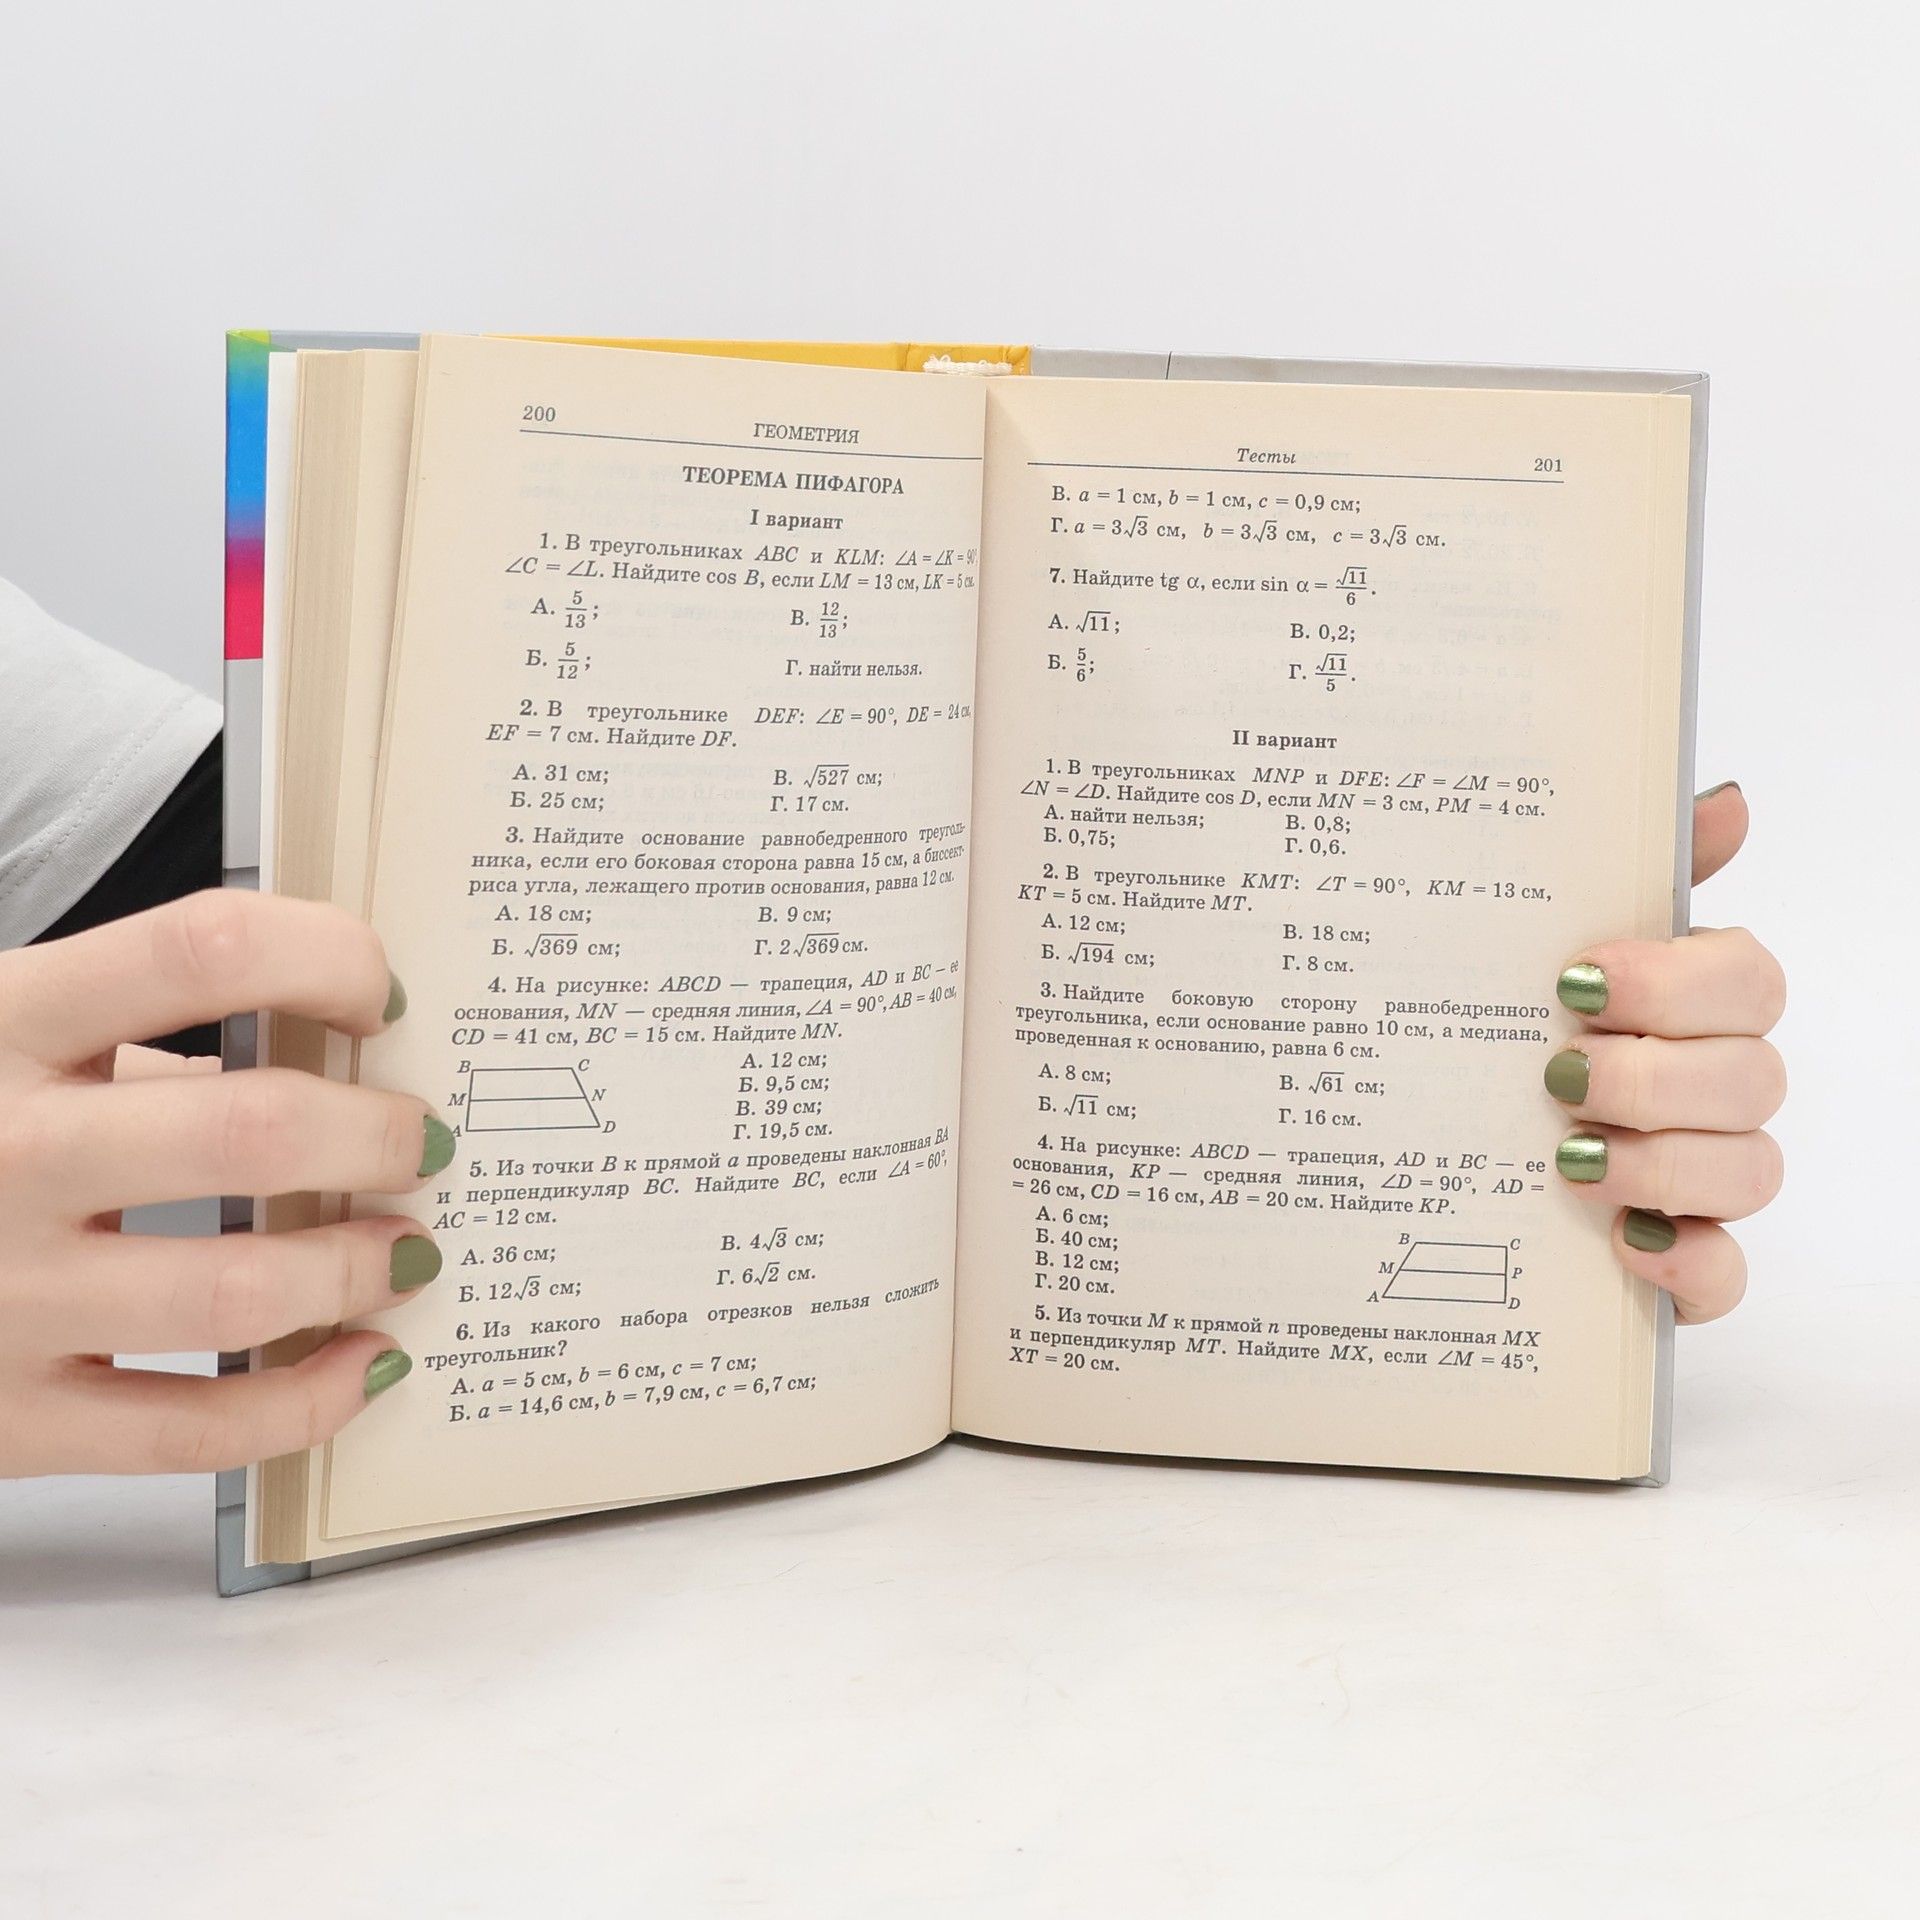 200
ГЕОМЕТРИЯ
ТЕОРЕМА ПИФАГОРА
I вариант
1. В треугольниках ABC и KLM: ∠A = ∠K = 90°,
∠C = ∠L. Найдите cos B, если LM = 13 см, LK = 5 см.
А. 5/13; В. 12/13;
Б. 5/12; Г. найти нельзя.
2. В треугольнике DEF: ∠E = 90°, DE = 24 см,
EF = 7 см. Найдите DF.
А. 31 см; В. √527 см;
Б. 25 см; Г. 17 см.
3. Найдите основание равнобедренного треуголь-
ника, если его боковая сторона равна 15 см, а биссект-
риса угла, лежащего против основания, равна 12 см.
А. 18 см; В. 9 см;
Б. √369 см; Г. 2√369 см.
4. На рисунке: ABCD — трапеция, AD и BC — ее
основания, MN — средняя линия, ∠A = 90°, AB = 40 см,
CD = 41 см, BC = 15 см. Найдите MN.
B C А. 12 см;
Б. 9,5 см;
M N В. 39 см;
A D Г. 19,5 см.
5. Из точки B к прямой a проведены наклонная BA
и перпендикуляр BC. Найдите BC, если ∠A = 60°,
AC = 12 см.
А. 36 см; В. 4√3 см;
Б. 12√3 см; Г. 6√2 см.
6. Из какого набора отрезков нельзя сложить
треугольник?
А. a = 5 см, b = 6 см, c = 7 см;
Б. a = 14,6 см, b = 7,9 см, c = 6,7 см;
Тесты 201
В. a = 1 см, b = 1 см, c = 0,9 см;
Г. a = 3√3 см, b = 3√3 см, c = 3√3 см.
7. Найдите tg α, если sin α = √11/6.
А. √11; В. 0,2;
Б. 5/6; Г. √11/5.
II вариант
1. В треугольниках MNP и DFE: ∠F = ∠M = 90°,
∠N = ∠D. Найдите cos D, если MN = 3 см, PM = 4 см.
А. найти нельзя; В. 0,8;
Б. 0,75; Г. 0,6.
2. В треугольнике KMT: ∠T = 90°, KM = 13 см,
KT = 5 см. Найдите MT.
А. 12 см; В. 18 см;
Б. √194 см; Г. 8 см.
3. Найдите боковую сторону равнобедренного
треугольника, если основание равно 10 см, а медиана,
проведенная к основанию, равна 6 см.
А. 8 см; В. √61 см;
Б. √11 см; Г. 16 см.
4. На рисунке: ABCD — трапеция, AD и BC — ее
основания, KP — средняя линия, ∠D = 90°, AD =
= 26 см, CD = 16 см, AB = 20 см. Найдите KP.
А. 6 см;
Б. 40 см; B C
В. 12 см; M P
Г. 20 см. A D
5. Из точки M к прямой n проведены наклонная MX
и перпендикуляр MT. Найдите MX, если ∠M = 45°,
XT = 20 см.